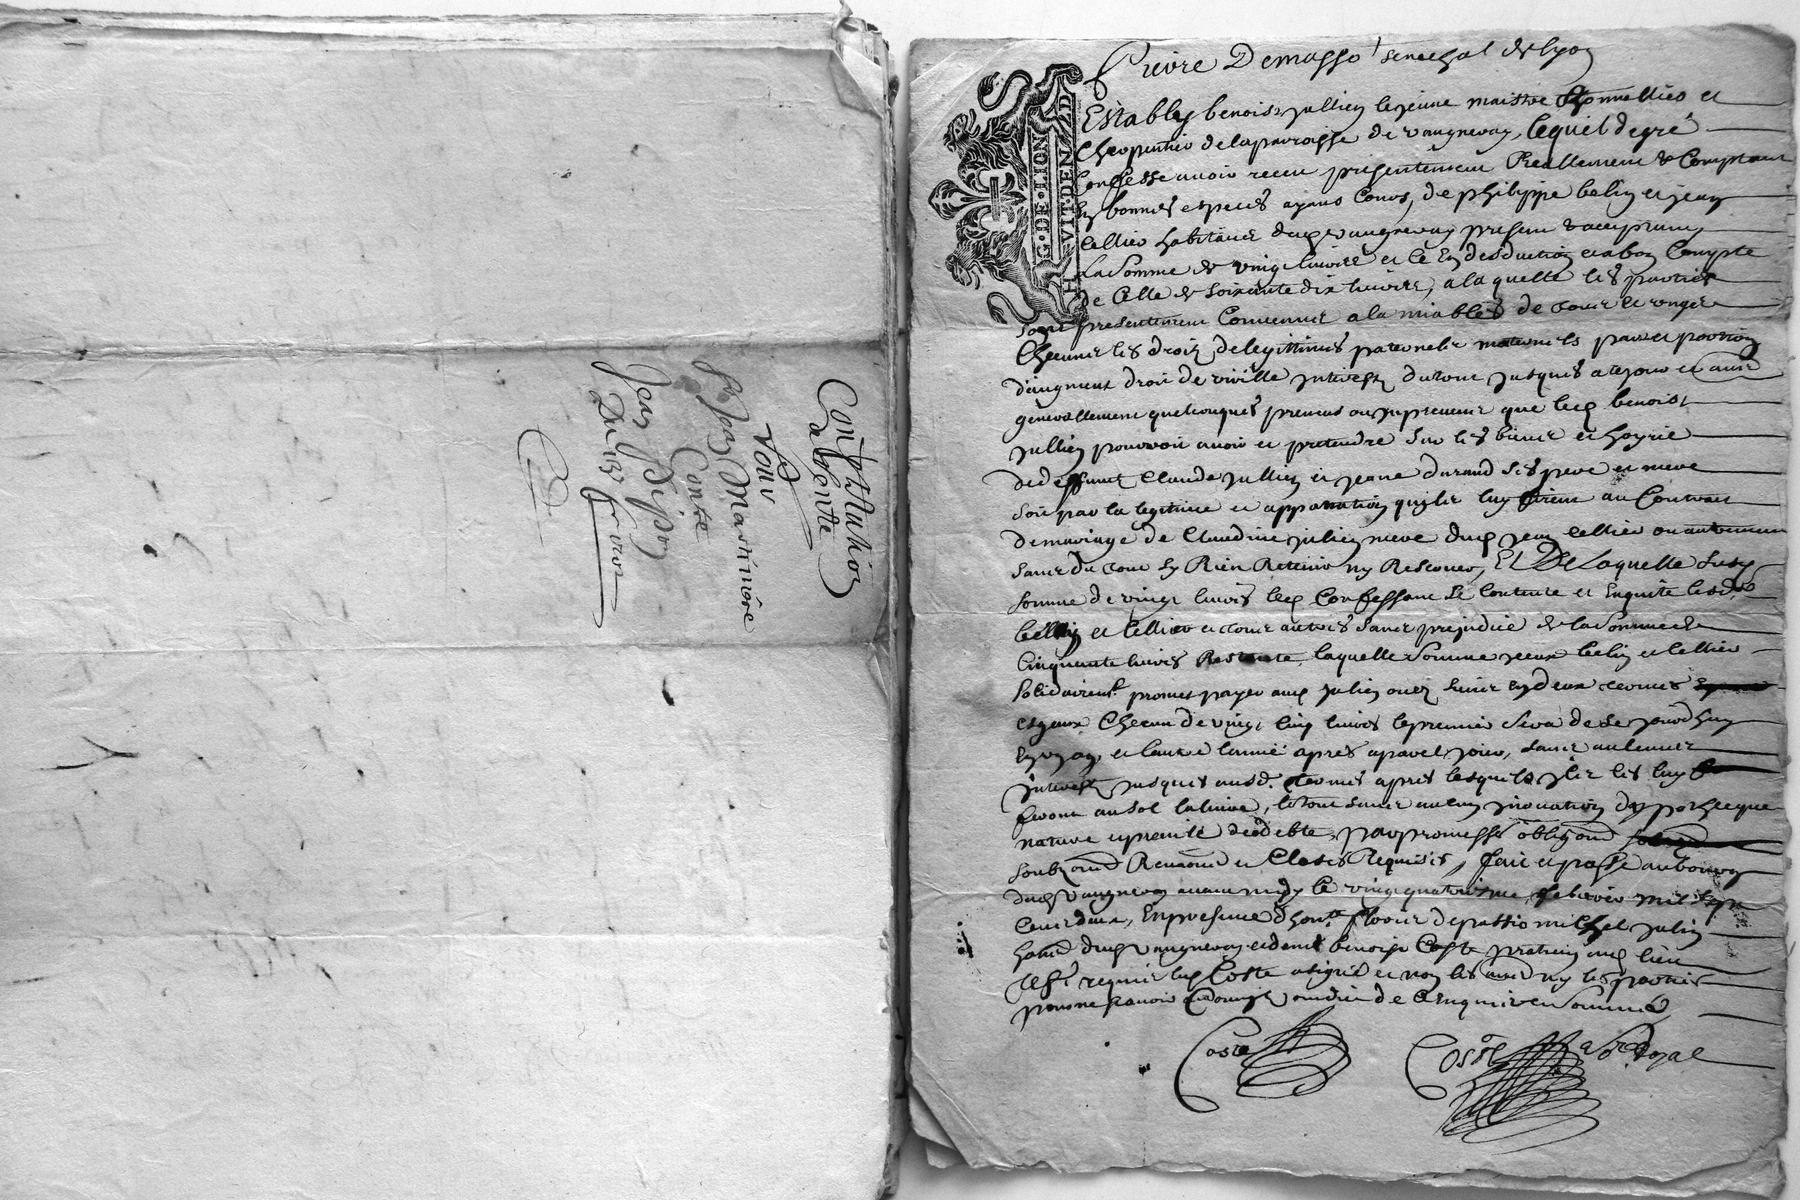 Constitution
a rente
Pour
Sr Jean Martiniere
Contre
Jean Depon
Du 13 Fevrier
G·DE·LION
H VIT·DEN D
Pierre Demasso senechal de lyon
Establý benoist jullien le jeune maistre et
Charpentier de la parroisse de vaugneray, lequel de gré
Confesse avoir receu presentement Reallement & Comptant
En bonnes especes ayans Cours, de philippe belin et jean
Cellier habitans dud vaugneray present & acceptans
La Somme de vingt livres et ce En desduction et a bon Compte
de Celle de Soixante dix livres, a la quelle les parties
Sont presentement Convenues a la miable de tous et ungs
Checuns les droits de legittimes paternels maternels part et portion
d'augment droit de vieille interest du tout jusques a ce jour et autre
generallement quelconques preveus ou inpreveus que led benoist
jullien pourroit avoir et pretendre Sur les biens et hoyrie
de deffunt Claude jullien et jeane durand Ses pere et mere
Soit par la legitime et au Contrat
de mariage de Claudine julien mere dud jean cellier ou autrement
Sans du tout En Rien Retenir ny Reserver, Et De Laquelle Susd
Somme de vingt livres led Confessant Se Contente et Enquitte lesd
bellin et Cellier et tous autres Sans prejudice de la Somme de
Cinquante livres Restante, laquelle Somme iceux belin et Cellier
Solidairemt promet payer aud julien ou es Siens En deux termes
Esgaux Checun de vingt cinq livres le premier Sera de Ce jourdhuy
En un an, et lautre lannée apres a pareil jour, Sans aulcuns
jnterest jusques ausd. termes apres lesquels ils les luy
feront au Sol la livre, le tout Sans aulcun inovation dypotheque
nature et privile de debte, par promesses oblig ond
Soubz ond Renond et Clozes Requises, fait et passé au bourg
dud vaugneray avant midy le vingt quatriesme febvrier mil Sept
Cent deux, En presence d'hont. florir depassio michel julien
habit dud vaugneray et de Mt benoist Coste praticien aud lieu
led Coste a signé et non les autres ny les parties
pour ne Scavoir de Ce Enquis et Sommés
Coste
Coste No.re Royal